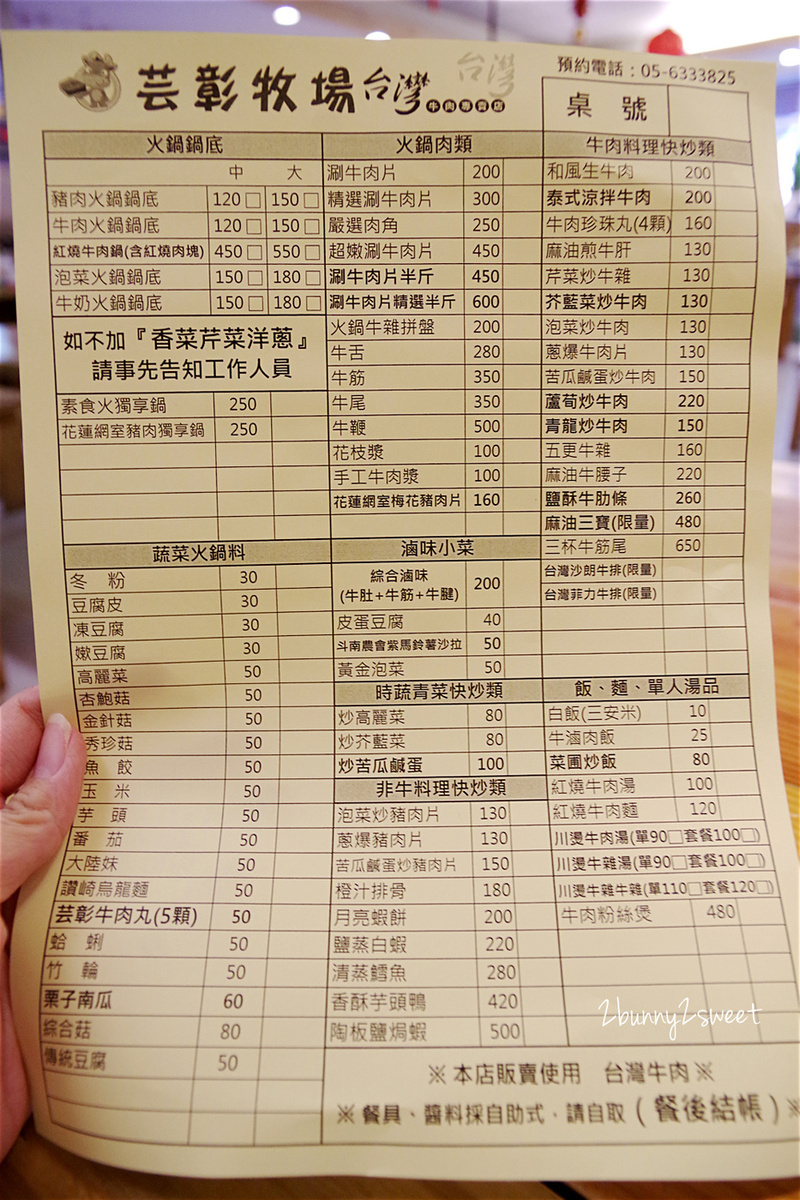 芸彰牧場 台灣 牛肉專賣店
台灣
預約電話：05-6333825
桌 號
火鍋鍋底
中 大
豬肉火鍋鍋底 120□ 150□
牛肉火鍋鍋底 120□ 150□
紅燒牛肉鍋(含紅燒肉塊) 450□ 550□
泡菜火鍋鍋底 150□ 180□
牛奶火鍋鍋底 150□ 180□
如不加『香菜芹菜洋蔥』
請事先告知工作人員
素食火獨享鍋 250
花蓮網室豬肉獨享鍋 250
蔬菜火鍋料
冬 粉 30
豆腐皮 30
凍豆腐 30
嫩豆腐 30
高麗菜 50
杏鮑菇 50
金針菇 50
秀珍菇 50
魚 餃 50
玉 米 50
芋 頭 50
番 茄 50
大陸妹 50
讚崎烏龍麵 50
芸彰牛肉丸(5顆) 50
蛤 蜊 50
竹 輪 50
栗子南瓜 60
綜合菇 80
傳統豆腐 50
火鍋肉類
涮牛肉片 200
精選涮牛肉片 300
嚴選肉角 250
超嫩涮牛肉片 450
涮牛肉片半斤 450
涮牛肉片精選半斤 600
火鍋牛雜拼盤 200
牛舌 280
牛筋 350
牛尾 350
牛鞭 500
花枝漿 100
手工牛肉漿 100
花蓮網室梅花豬肉片 160
滷味小菜
綜合滷味
(牛肚+牛筋+牛腱) 200
皮蛋豆腐 40
斗南農會紫馬鈴薯沙拉 50
黃金泡菜 50
時蔬青菜快炒類
炒高麗菜 80
炒芥藍菜 80
炒苦瓜鹹蛋 100
非牛料理快炒類
泡菜炒豬肉片 130
蔥爆豬肉片 130
苦瓜鹹蛋炒豬肉片 150
橙汁排骨 180
月亮蝦餅 200
鹽蒸白蝦 220
清蒸鱈魚 280
香酥芋頭鴨 420
陶板鹽焗蝦 500
牛肉料理快炒類
和風生牛肉 200
泰式涼拌牛肉 200
牛肉珍珠丸(4顆) 160
麻油煎牛肝 130
芹菜炒牛雜 130
芥藍菜炒牛肉 130
泡菜炒牛肉 130
蔥爆牛肉片 130
苦瓜鹹蛋炒牛肉 150
蘆筍炒牛肉 220
青龍炒牛肉 150
五更牛雜 160
麻油牛腰子 220
鹽酥牛肋條 260
麻油三寶(限量) 480
三杯牛筋尾 650
台灣沙朗牛排(限量)
台灣菲力牛排(限量)
飯、麵、單人湯品
白飯(三安米) 10
牛滷肉飯 25
菜圃炒飯 80
紅燒牛肉湯 100
紅燒牛肉麵 120
川燙牛肉湯(單90□套餐100□)
川燙牛雜湯(單90□套餐100□)
川燙牛雜牛雜(單110□套餐120□)
牛肉粉絲煲 480
※本店販賣使用 台灣牛肉※
※餐具、醬料採自助式，請自取(餐後結帳)※
2bunny2sweet